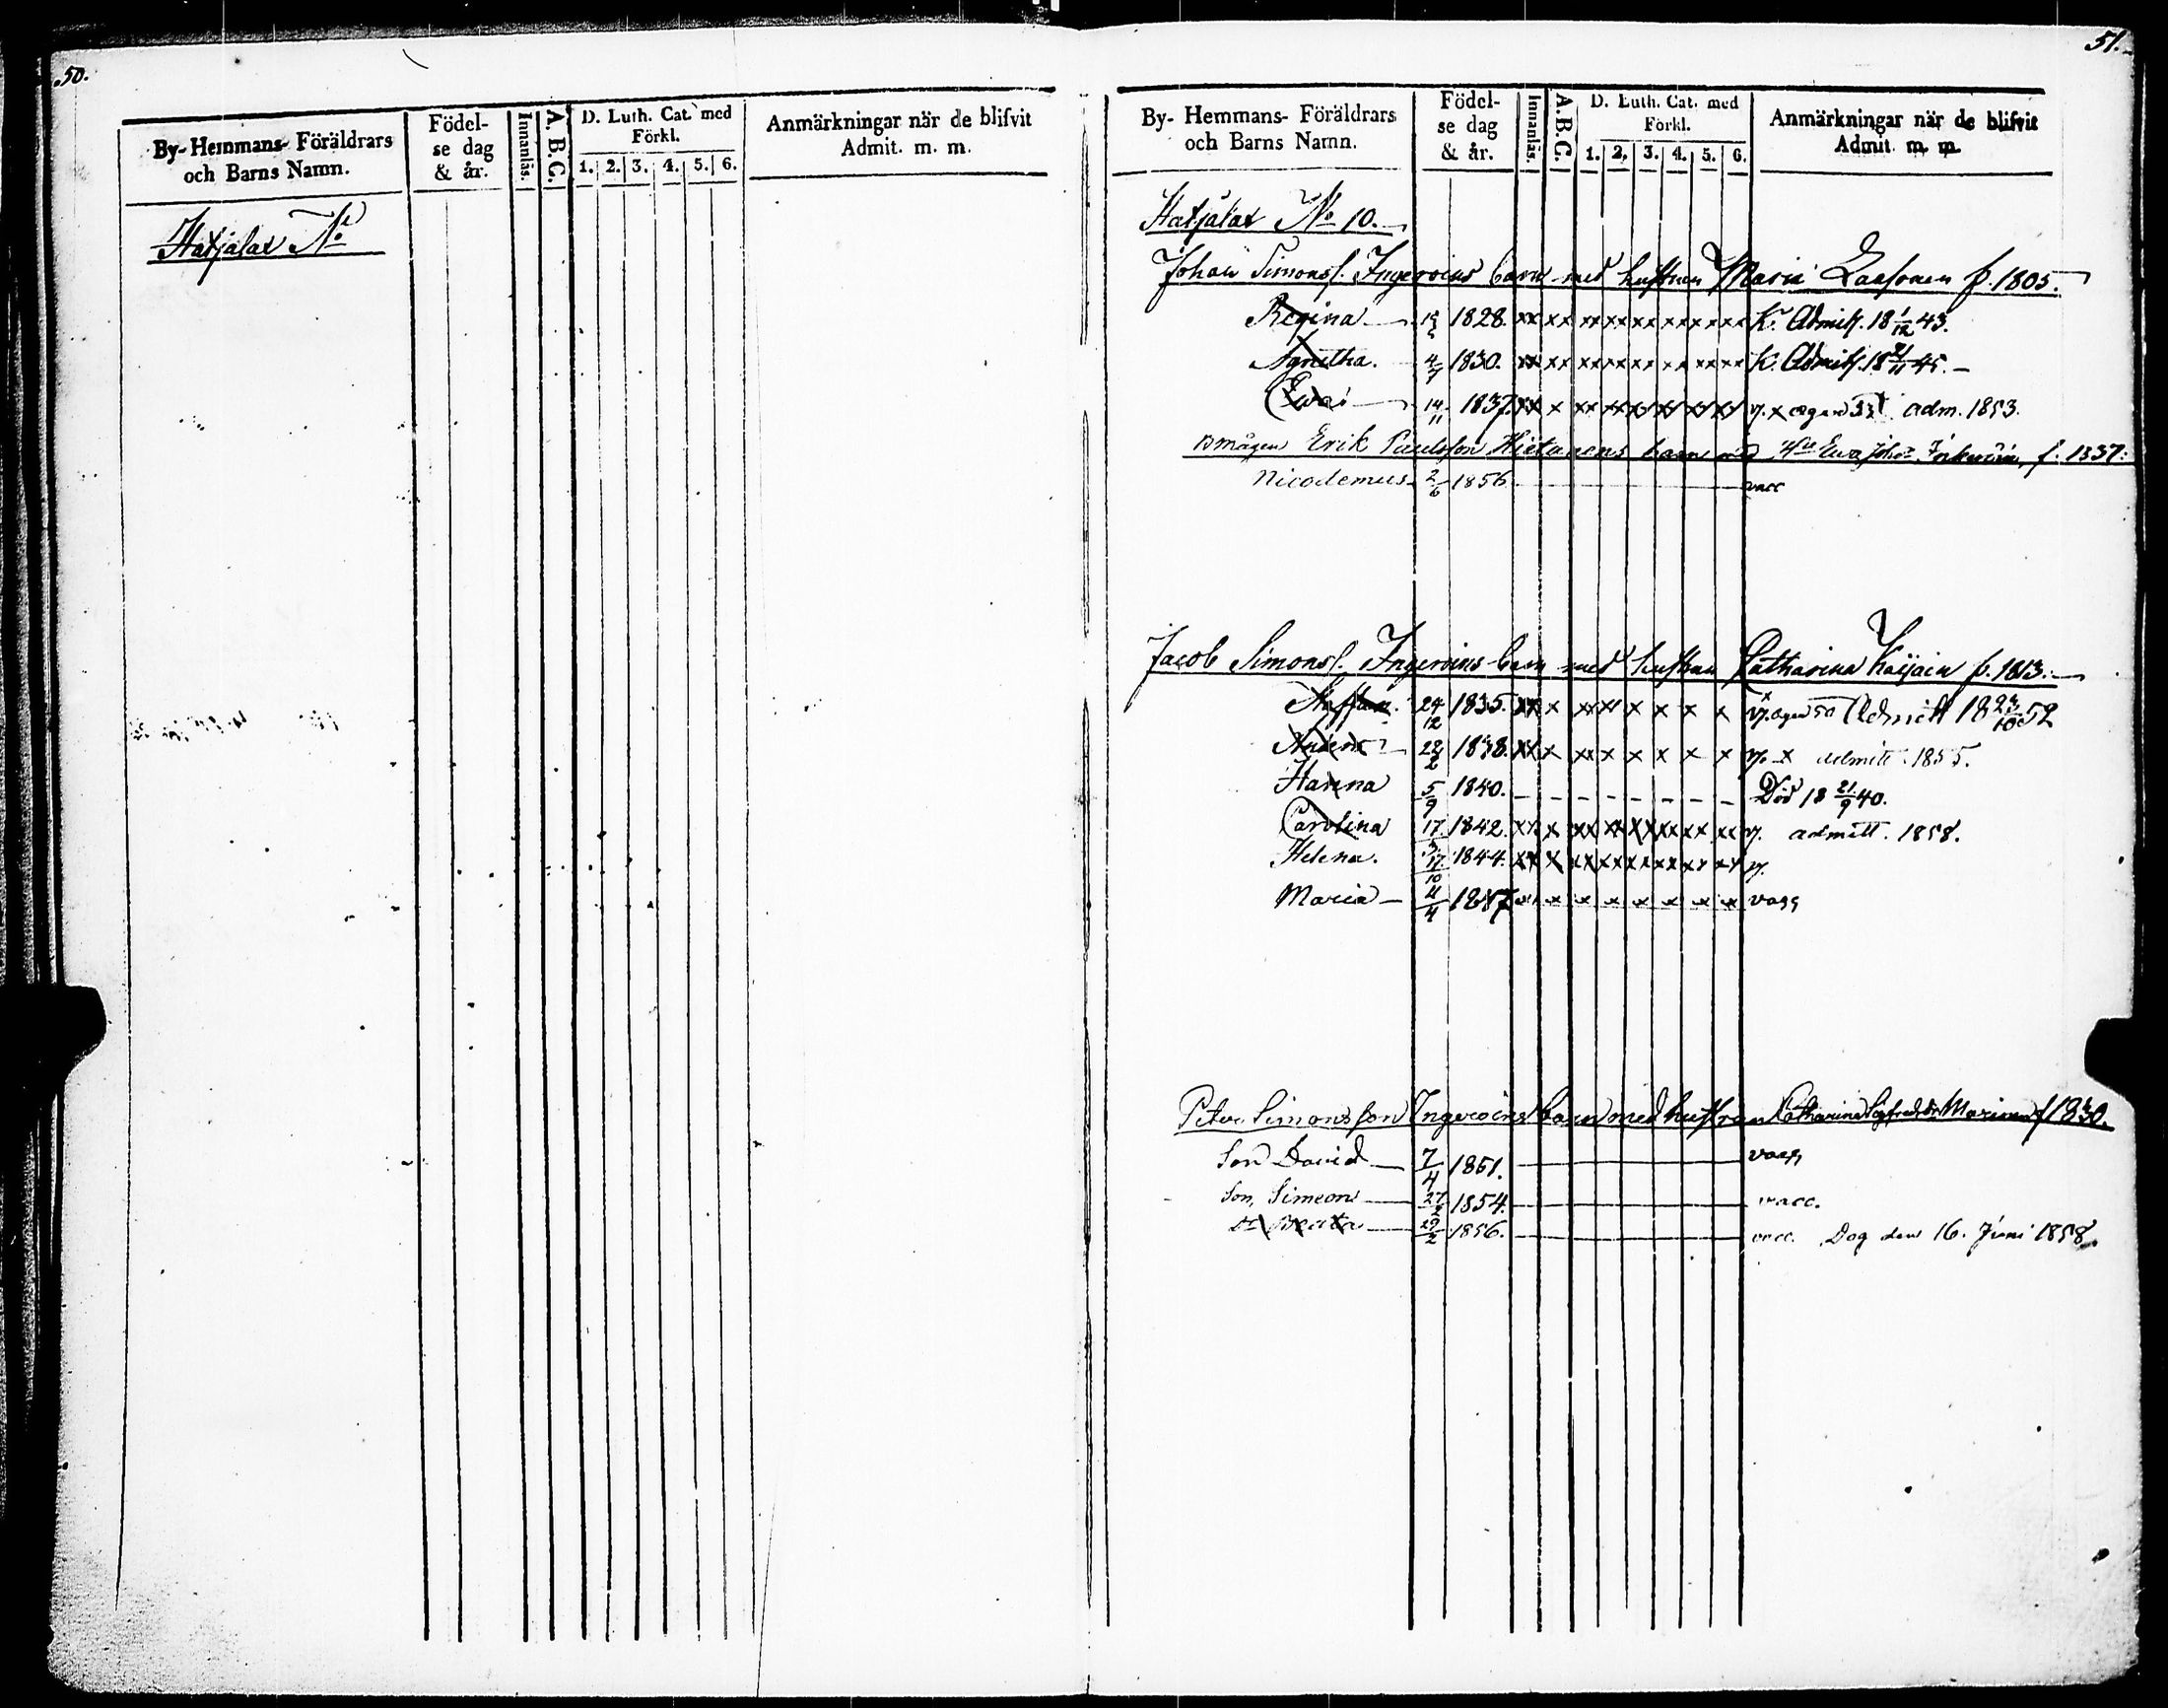 50.
By- Hemmans- Föräldrars och Barns Namn.
Födel-se dag & år.
Innanläs.
A. B. C.
D. Luth. Cat. med Förkl.
1. 2. 3. 4. 5. 6.
Anmärkningar när de blifvit Admit. m. m.
Hatjalax No
51.
By- Hemmans- Föräldrars och Barns Namn.
Födel-se dag & år.
Innanläs.
A. B. C.
D. Luth. Cat. med Förkl.
1. 2. 3. 4. 5. 6.
Anmärkningar när de blifvit Admit. m. m.
Hatjalax No 10.
Johan Simonss. Ingeroins barn med hustrun Maria f. 1805.
Regina 1828. xx xx xx xx xx xx xx xx K. Admitt. 18 1/12 43.
Agnetha. 4/7 1830. xx xx xx xx xx x x xx xx K. Admitt. 18 45.
Ewa 14/11 1837. xx x xx xx xx xx xx xx adm. 1853.
Erik Paulsson Hietanens barn med Ewa f. 1837.
Nicodemus 2/6 1856 vacc
Jacob Simonss. Ingeroins barn med hustrun Catharina f. 1813.
Staffan. 24/12 1835. xx x xx x x x x Admitt 18 23/10 52
22/2 1838. xx x xx x x x x x v. x admitt. 1855.
Hanna 5/9 1840. - - - - - - - - Död 18 21/9 40.
Carolina 17 1842. xx x xx xx xx xx xx xx v. admitt. 1858.
Helena. 17/10 1844. xx x xx xx xx xx xx xx v.
Maria 4/4 1847 x x x x x x x vacc
Peter Simonsson Ingeroins barn med hustrun Catharina f 1830.
Son David 7/4 1851. vacc
Son, Simeon 27/2 1854. vacc.
Dr Beata 29/2 1856. vacc. Dog den 16. Juni 1858.